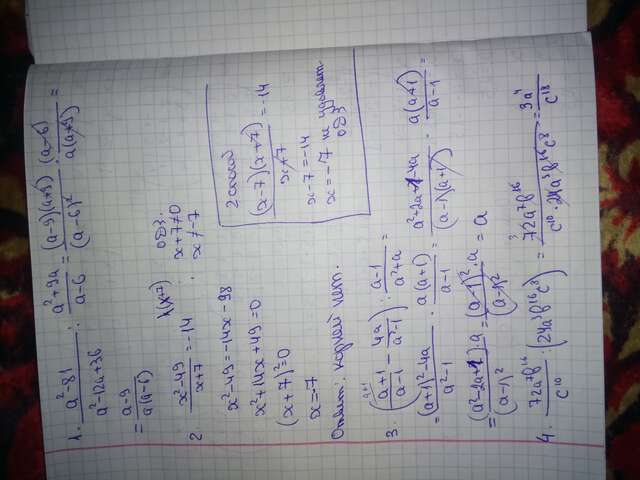 1. (a²-81)/(a²-12a+36) : (a²+9a)/(a-6) = (a-9)(a+9)/(a-6)² · (a-6)/(a(a+9)) =
= (a-9)/(a(a-6))
2. (x²-49)/(x+7) = -14 | (x+7)
ОДЗ:
x+7≠0
x≠-7
x²-49=-14x-98
x²+14x+49=0
(x+7)²=0
x=-7
Ответ: корней нет.
2 способ
(x-7)(x+7)/(x+7) = -14
x-7=-14
x=-7 не удовлет.
ОДЗ
3. ((a+1)/(a-1) - 4a/(a²-1)) : (a-1)/(a²+a) =
= ((a+1)²-4a)/(a²-1) · a(a+1)/(a-1) = (a²+2a+1-4a)/((a-1)(a+1)) · a(a+1)/(a-1) =
= (a²-2a+1)·a/(a-1)² = (a-1)²·a/(a-1)² = a
4. 72a⁷b¹⁶/c¹⁰ : (24a³b¹⁶c⁸) = 72a⁷b¹⁶/(c¹⁰·24a³b¹⁶c⁸) = 3a⁴/c¹⁸